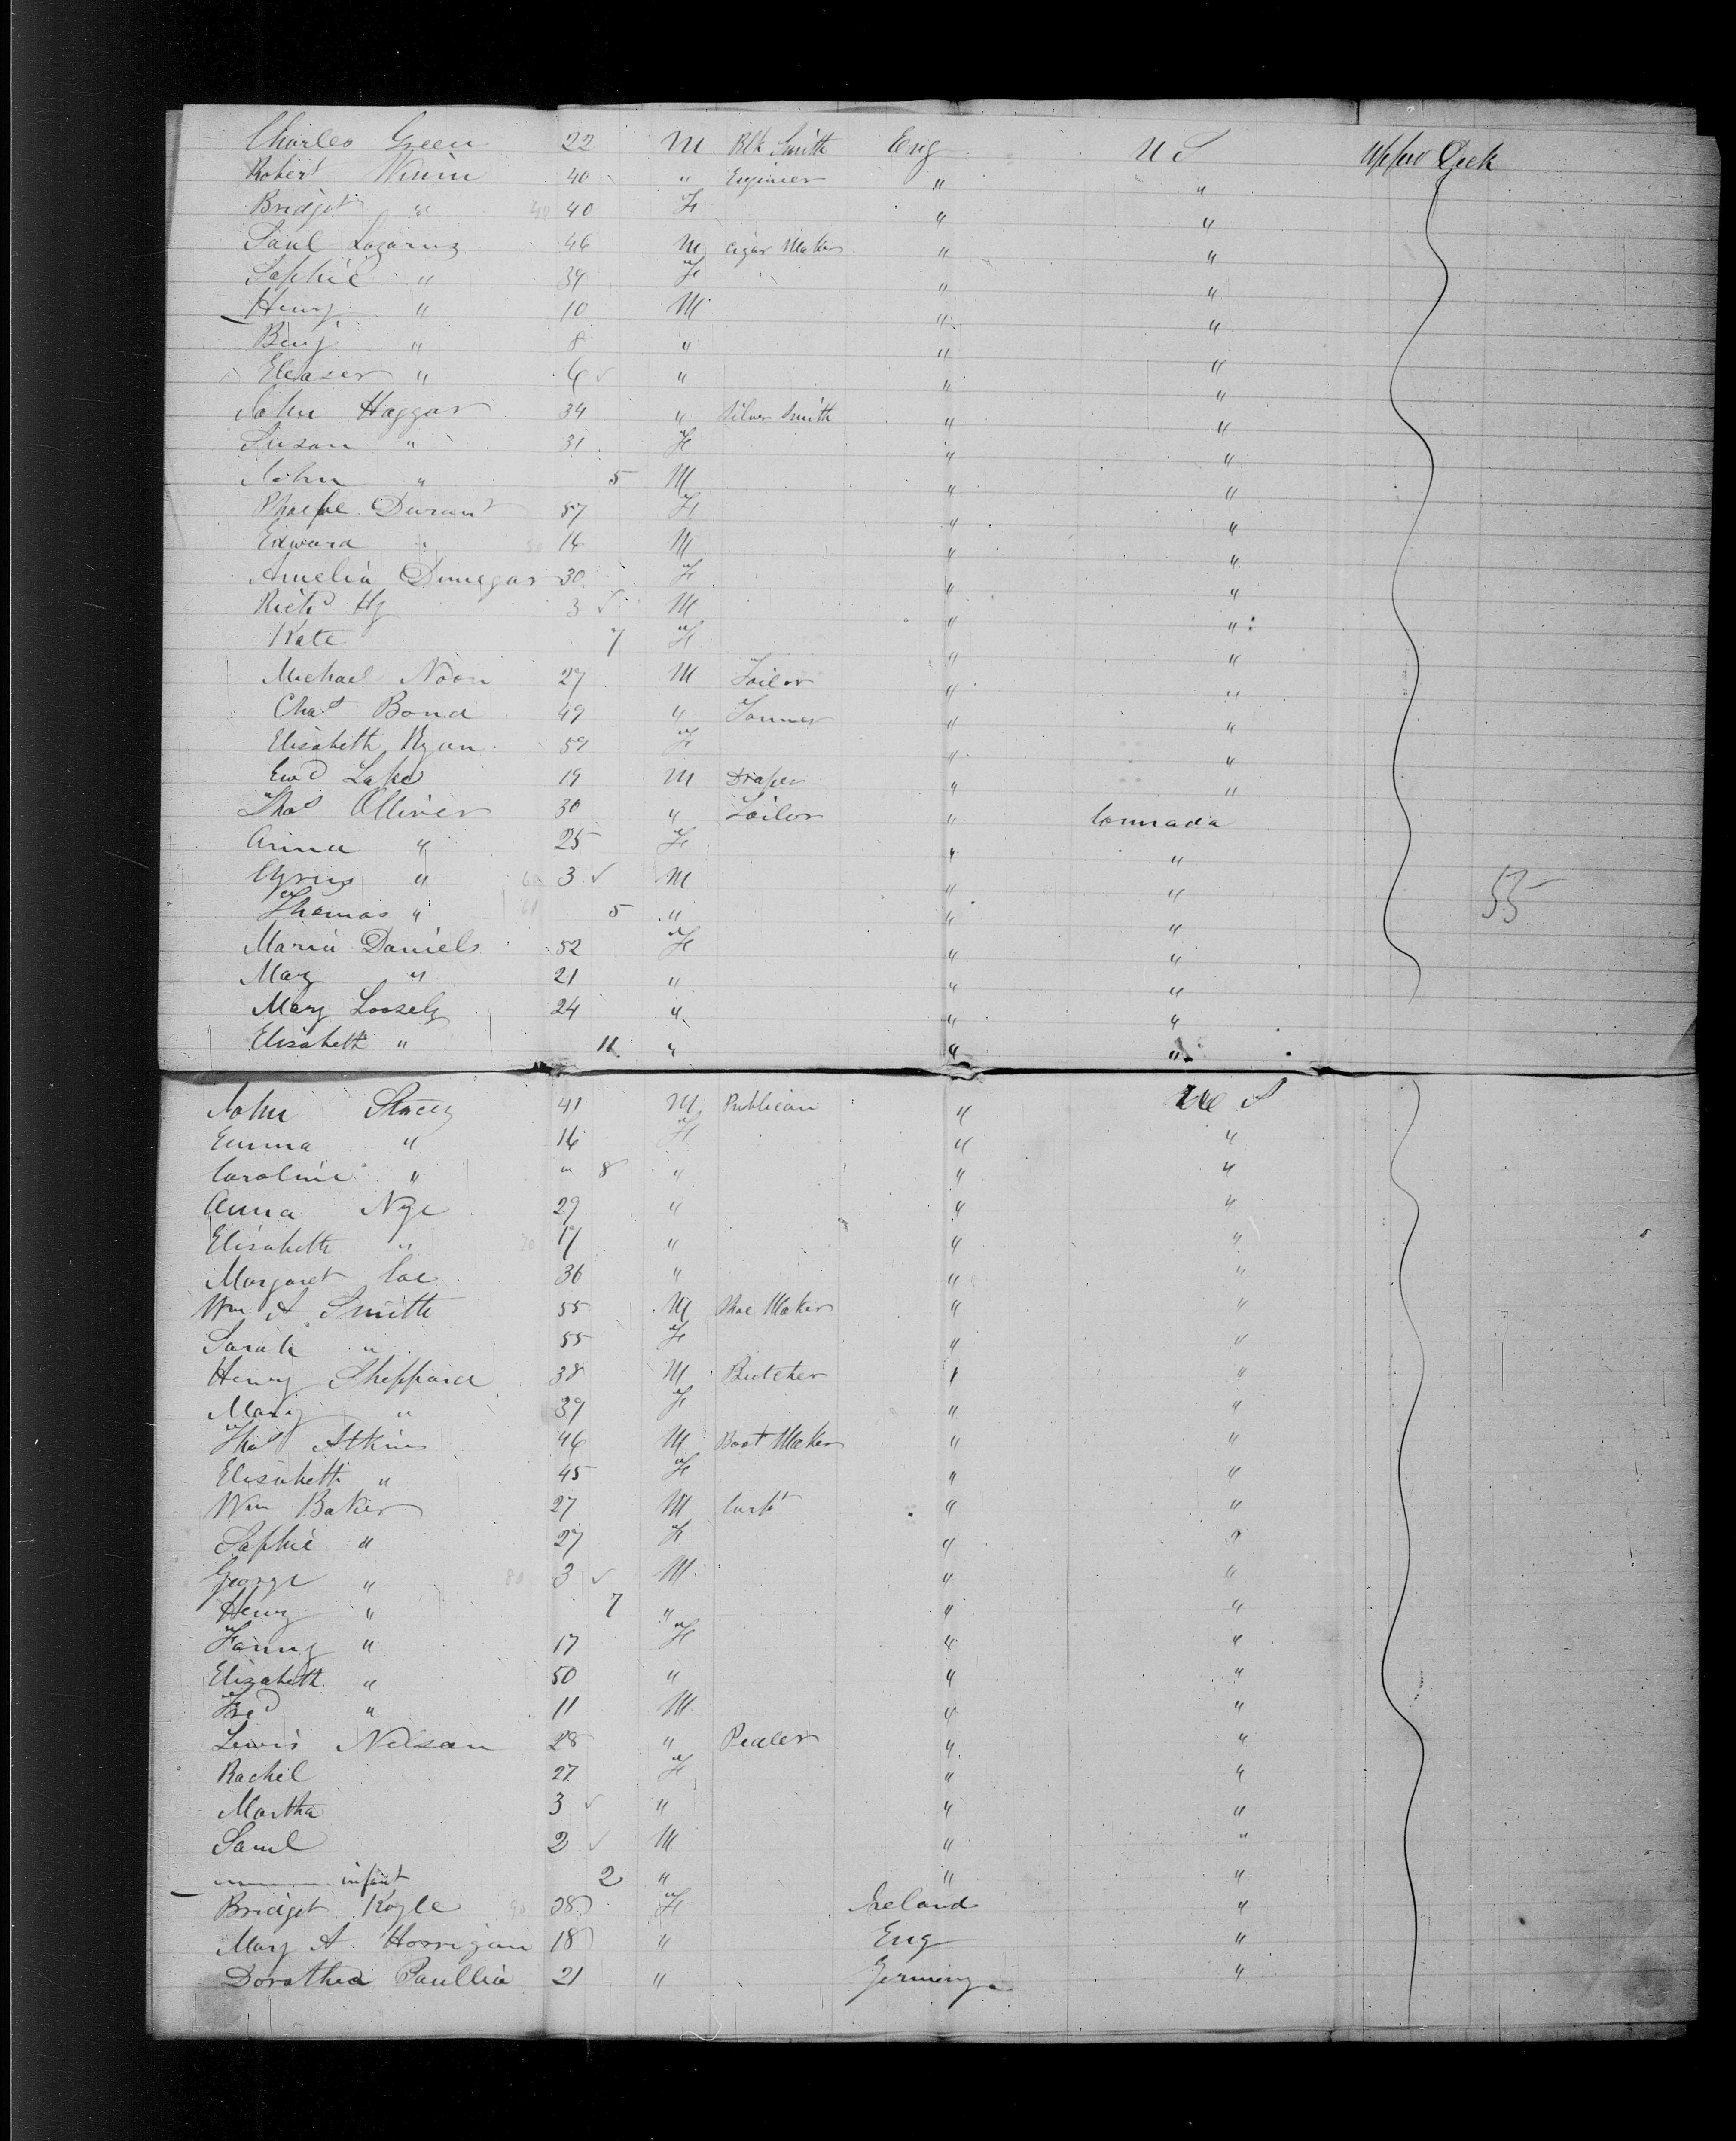 Charles Green 22 M Blk Smith Eng U S Upper Deck
Robert 40 " Engineer " "
Bridget " 40 40 F " "
Saul Lazarus 46 M Cigar Maker " "
Sophie " 34 F " "
Henry " 10 M " "
Benj " 8 " " "
Eleaser " 6 ✓ " " "
John Haggar 34 " Silver Smith " "
Susan " 31 F " "
John " 5 M " "
Phoebe Durant 57 F " "
Edward " 50 16 M " "
Amelia Dunegar 30 F " "
Richd Hy 3 ✓ M " "
Kate 7 F " "
Michael Noon 27 M Tailor " "
Chas Bond 49 " Tanner " "
Elisabeth Ryan 59 F " "
Ewd 19 M Draper " "
Thos Olliver 30 " Tailor " Cannada
Anna " 25 F " "
Cyrus " 60 3 ✓ M " "
Thomas " 61 5 " " "
Maria Daniels 52 F " "
Mary " 21 " " "
Mary Loosely 24 " " "
Elisabeth " 11 " " "
55
John Stacey 41 M Publican " U S
Emma " 16 F " "
Caroline " " 8 " " "
Anna Nye 29 " " "
Elisabeth " 70 17 " " "
Margaret Coe 36 " " "
Wm A Smith 55 M Shoe Maker " "
Sarah " 55 F " "
Henry Sheppard 38 M Butcher " "
Mary " 39 F " "
Thos Atkins 46 M Boot Maker " "
Elisabeth " 45 F " "
Wm Baker 27 M Carpt " "
Sophie " 27 F " "
George " 80 3 ✓ M " "
Henry " 7 " " "
Fanny " 17 F " "
Elizabeth " 50 " " "
Fred " 11 M " "
Lewis Nelson 28 " Dealer " "
Rachel 27 F " "
Martha 3 ✓ " " "
Saml 2 ✓ M " "
infant 2 " " "
Bridget Koyle 90 38 F Ireland "
Mary A Horrigan 18 " Eng "
Dorothea Paullia 21 " Germany "